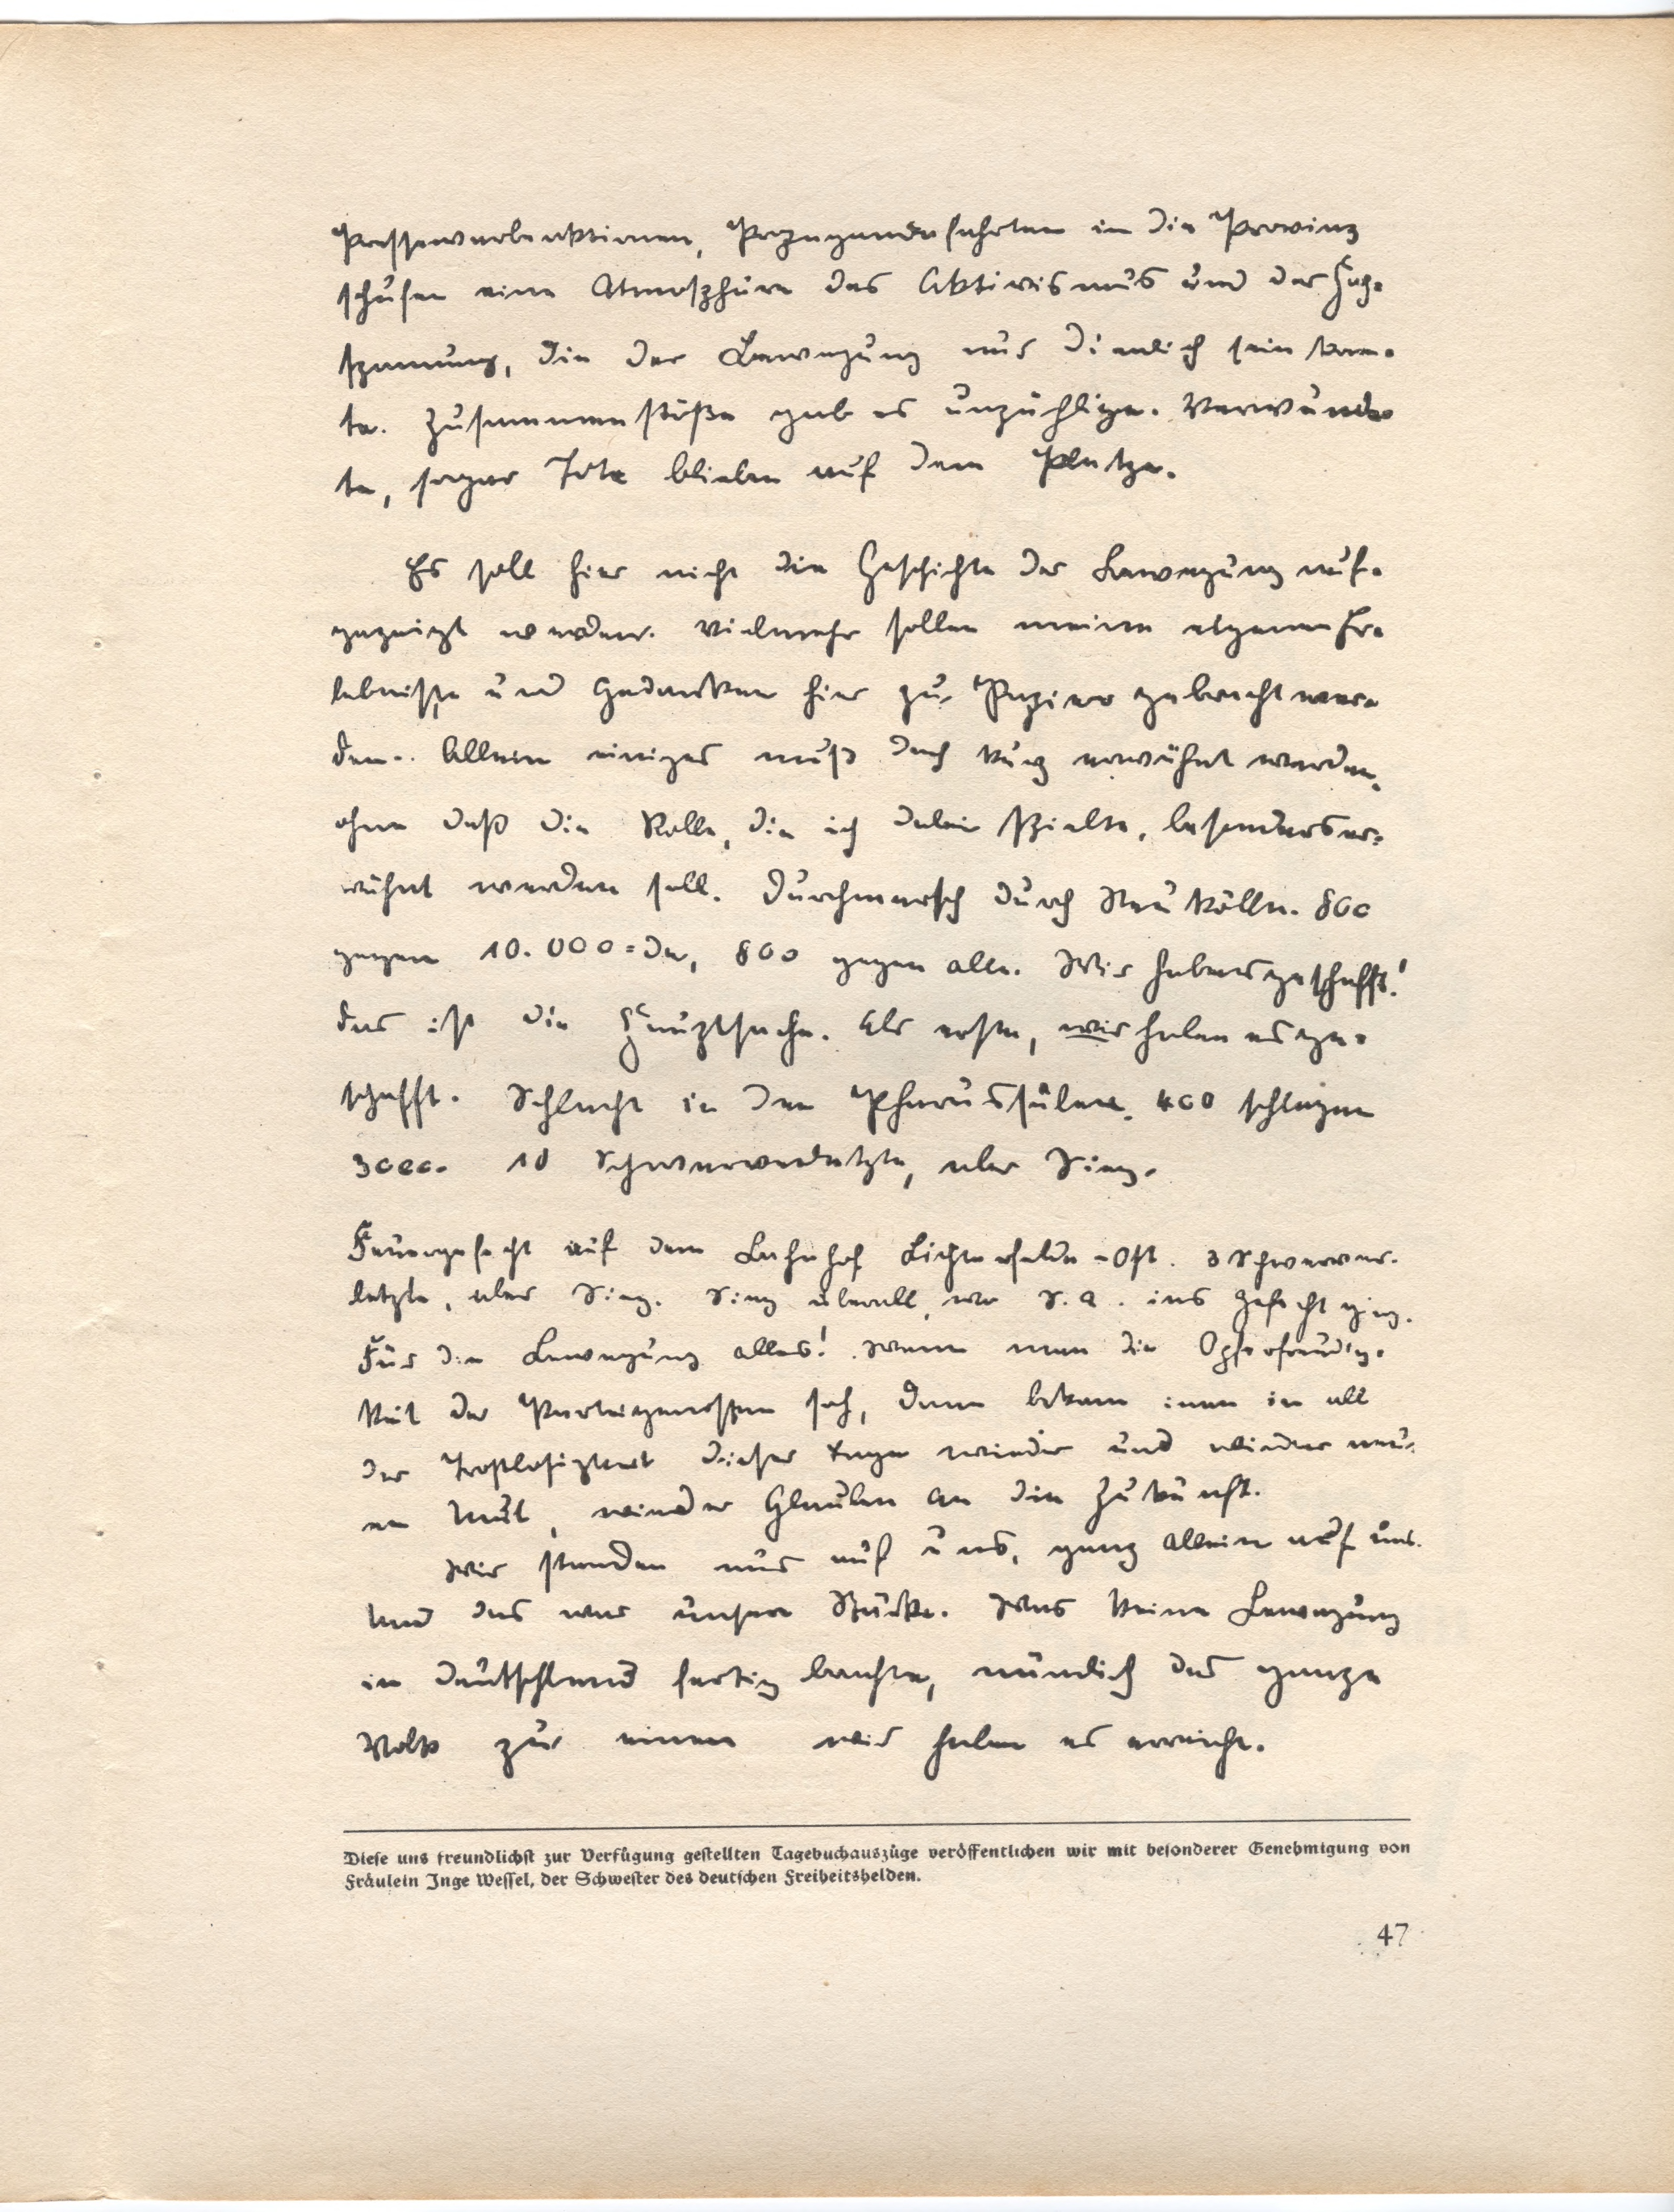 Pressewerbeaktionen, Propagandafahrten in die Provinz
schufen eine Atmosphäre des Aktivismus und der Hoch-
spannung, die der Bewegung nur dienlich sein konn-
te. Zusammenstöße gab es unzählige. Verwunde-
te, sogar Tote blieben auf dem Platze.
Es soll hier nicht die Geschichte der Bewegung auf-
gezeigt werden. Vielmehr sollen meine eigenen Er-
lebnisse und Gedanken hier zu Papier gebracht wer-
den. Allein einiges muß doch kurz erwähnt werden,
ohne daß die Rolle, die ich dabei spielte, besonders er-
wähnt werden soll. Durchmarsch durch Neukölln. 800
gegen 10.000-de, 800 gegen alle. Wir haben es geschafft!
das ist die Hauptsache. Als erste, wir haben es ge-
schafft. Schlacht in den Pharussälen. 400 schlagen
3000. 10 Schwerverletzte, aber Sieg.
Feuergefecht auf dem Bahnhof Lichterfelde-Ost. 3 Schwerver-
letzte, aber Sieg. Sieg überall, wo S.A. ins Gefecht ging.
Für die Bewegung alles! Wenn man die Opferfreudig-
keit der Parteigenossen sah, dann bekam man in all
der Trostlosigkeit dieser Tage wieder und wieder neu-
en Mut, wieder Glauben an die Zukunft.
Wir standen nur auf uns, ganz allein auf uns.
Und das war unsere Stärke. Was keine Bewegung
in Deutschland fertig brachte, nämlich das ganze
Volk zu einen wir haben es erreicht.
Diese uns freundlichst zur Verfügung gestellten Tagebuchauszüge veröffentlichen wir mit besonderer Genehmigung von
Fräulein Inge Wessel, der Schwester des deutschen Freiheitshelden.
47